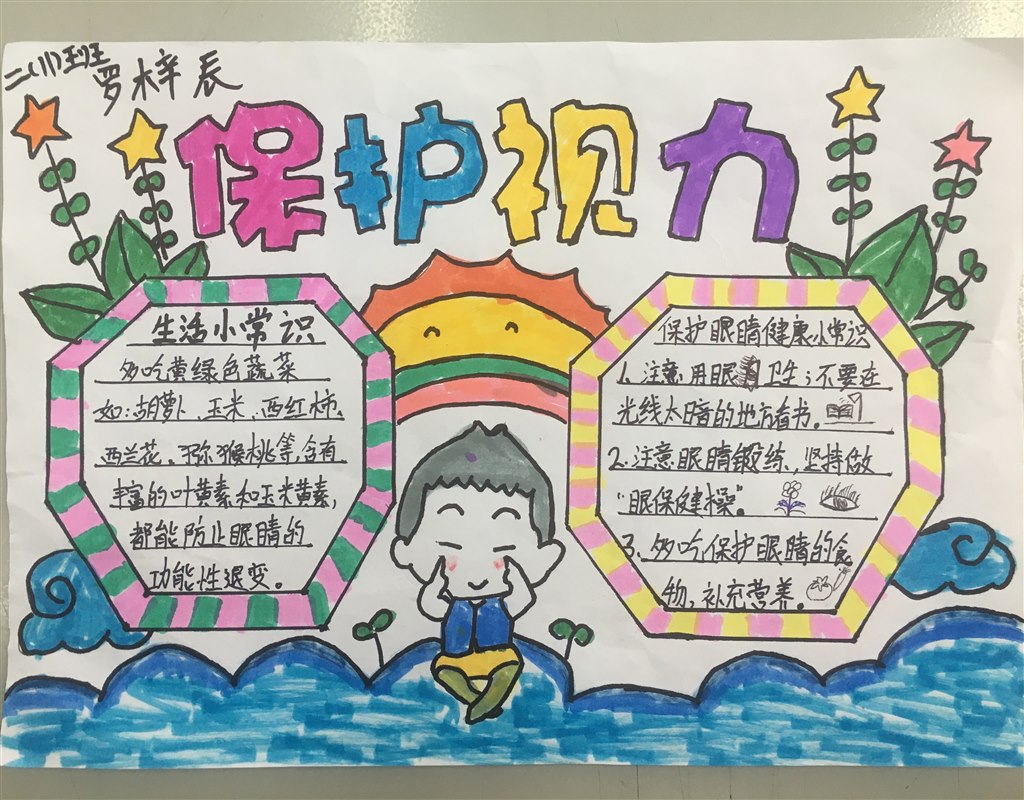 二(11)班
罗梓辰
保护视力
生活小常识
多吃黄绿色蔬菜
如:胡萝卜、玉米、西红柿、
西兰花、猕猴桃等,含有
丰富的叶黄素和玉米黄素,
都能防止眼睛的
功能性退变。
保护眼睛健康小常识
1、注意用眼卫生;不要在
光线太暗的地方看书。
2、注意眼睛锻练,坚持做
“眼保健操”。
3、多吃保护眼睛的食
物,补充营养。